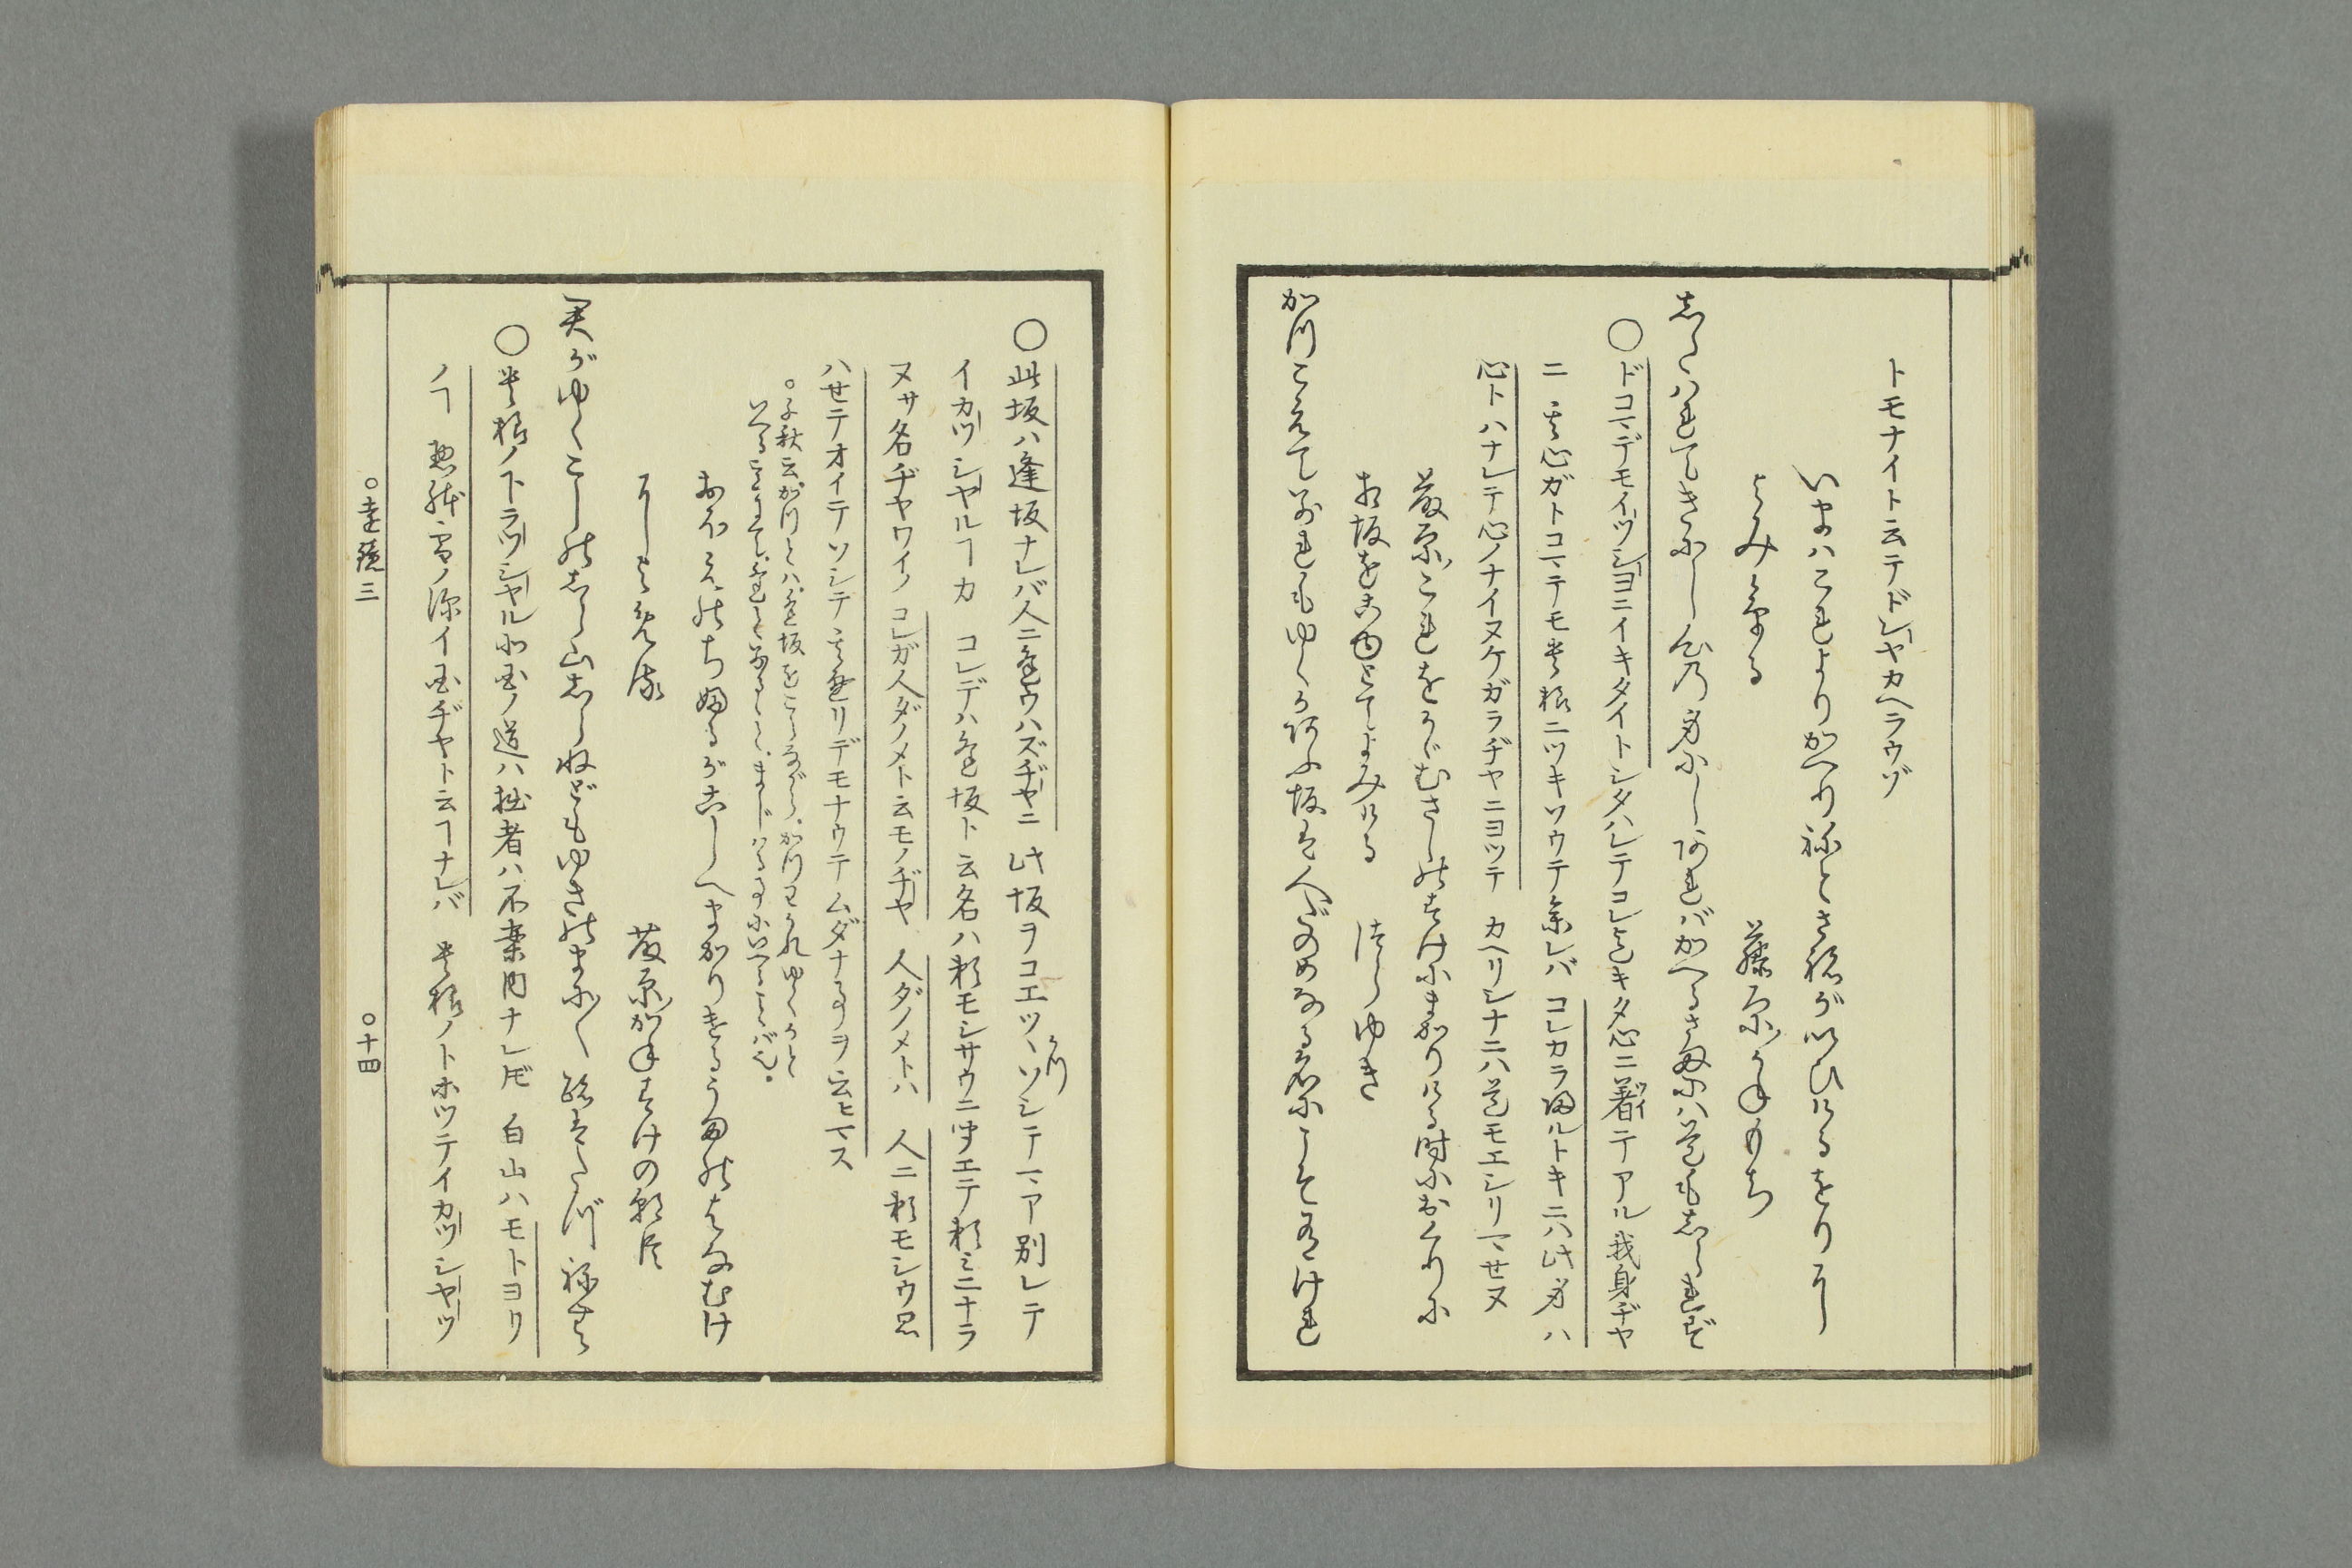 トモナイト云テドシヤカヘラウゾ
いまはこれよりかへりねとさねがいひけるをりに
よみける　藤原かねもち
したはれてきにし心の身にしあればかへるさまには道もしられず
○ドコマデモイツシヨニイキタイトシタハレテコレ迄キタ心ニ着テアル我身ヂヤ
ニ　其心ガドコマテモ貴様ニツキソウテ参レバ　コレカラ帰ルトキニハ此身ハ
心トハナレテ心ノナイヌケガラヂヤニヨツテ　カヘリシナニハ道モエシリマセヌ
藤原これをかがむさしのすけにまかりける時におくりに
相坂をこゆとてよみける　つらゆき
かつこえてわかれもゆくかあふ坂は人だのめなる名にこそ有けれ
○此坂ハ逢坂ナレバ人ニ逢ウハズヂヤニ　此坂ヲコエツヽかつソシテマア別レテ
イカツシヤルヿカ　コレデハ逢坂ト云名ハ頼モシサウニ聞エテ頼ミニナラ
ヌサ名ヂヤワイノ　コレガ人ダノメト云モノヂヤ　人ダノメトハ　人ニ頼モシウ思
ハセテオイテソシテ其通リデモナウテムダナ事ヲ云ヒマス
○千秋云かつとは逢坂をこえながらかつわかれゆくかと
おほえのちふるがこしへまかりけるうまのはなむけ
によめる　藤原かねすけの朝臣
君がゆくこしのしら山しらねどもゆきのまに〱跡はたづねむ
○貴様ノトラツシヤル北国ノ道ハ拙者ハ不案内ナレド㐧　白山ハモトヨリ
ノヿ　惣躰雪ノ深イ国ヂヤト云ヿナレバ　貴様ノトホツテイカツシヤツ
○遠鏡三　○十四